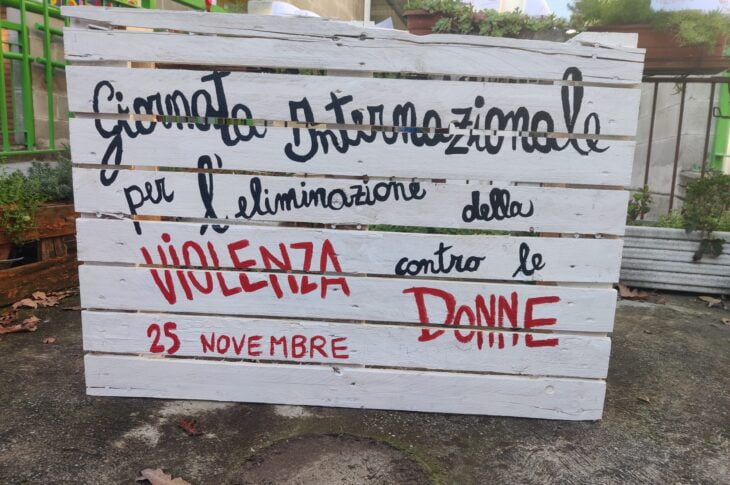 Giornata Internazionale
per l'eliminazione della
VIOLENZA contro le
DONNE
25 NOVEMBRE